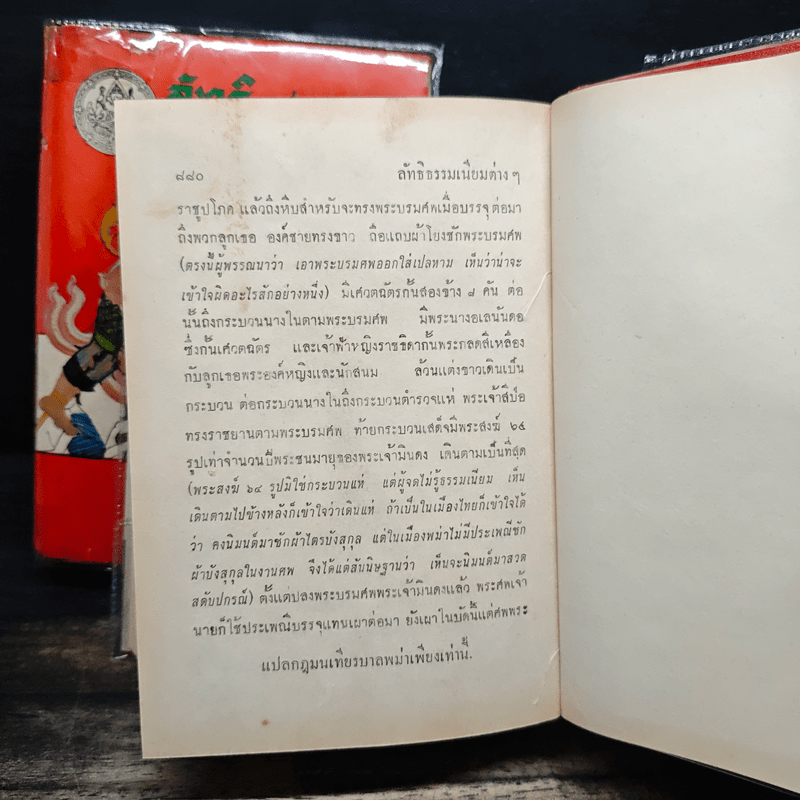 ลัทธิ
๘๘๐ ลัทธิธรรมเนียมต่าง ๆ
ราชูปโภค แล้วถึงหีบสำหรับจะทรงพระบรมศพเมื่อบรรจุ ต่อมา
ถึงพวกลูกเธอ องค์ชายทรงขาว ถือแถบผ้าโยงชักพระบรมศพ
(ตรงนี้ผู้พรรณนาว่า เอาพระบรมศพออกใส่เปลหาม เห็นว่าน่าจะ
เข้าใจผิดอะไรสักอย่างหนึ่ง) มีเศวตฉัตรกั้นสองข้าง ๘ คัน ต่อ
นั้นถึงกระบวนนางในตามพระบรมศพ มีพระนางอเลนันดอ
ซึ่งกั้นเศวตฉัตร และเจ้าฟ้าหญิงราชธิดากั้นพระกลดสีเหลือง
กับลูกเธอพระองค์หญิงและนักสนม ล้วนแต่งขาวเดินเป็น
กระบวน ต่อกระบวนนางในถึงกระบวนตำรวจแห่ พระเจ้าสีป่อ
ทรงราชยานตามพระบรมศพ ท้ายกระบวนเสด็จมีพระสงฆ์ ๖๔
รูปเท่าจำนวนปีพระชนมายุของพระเจ้ามินดง เดินตามเป็นที่สุด
(พระสงฆ์ ๖๔ รูปมิใช่กระบวนแห่ แต่ผู้จดไม่รู้ธรรมเนียม เห็น
เดินตามไปข้างหลังก็เข้าใจว่าเดินแห่ ถ้าเป็นในเมืองไทยก็เข้าใจได้
ว่า คงนิมนต์มาชักผ้าไตรบังสุกุล แต่ในเมืองพม่าไม่มีประเพณีชัก
ผ้าบังสุกุลในงานศพ จึงได้แต่สันนิษฐานว่า เห็นจะนิมนต์มาสวด
สดับปกรณ์) ตั้งแต่ปลงพระบรมศพพระเจ้ามินดงแล้ว พระศพเจ้า
นายก็ใช้ประเพณีบรรจุแทนเผาต่อมา ยังเผาในบัดนี้แต่ศพพระ
แปลกฎมนเทียรบาลพม่าเพียงเท่านี้.